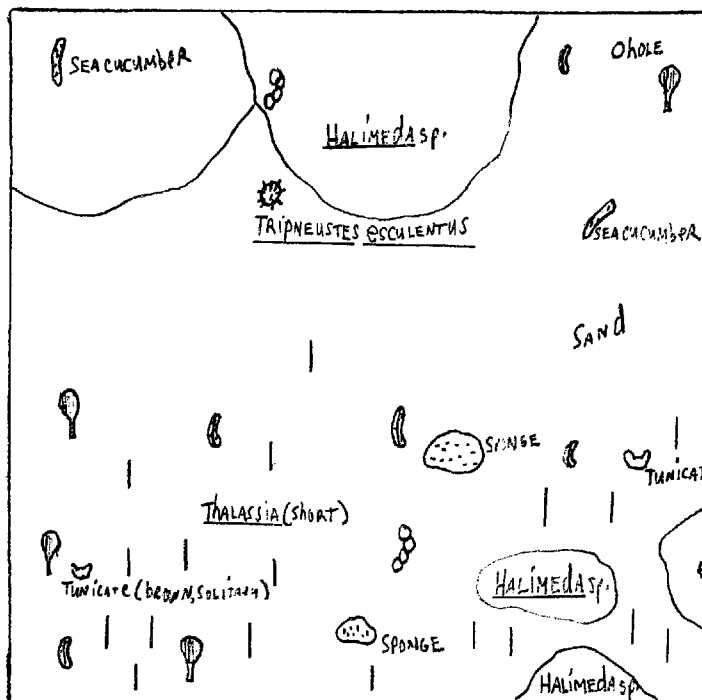 SEA CUCUMBER
O HOLE
HALIMEDA sp.
TRIPNEUSTES ESCULENTUS
SEA CUCUMBER
SAND
SPONGE
TUNICAT
THALASSIA (SHORT)
TUNICATE (BROWN, SOLITARY)
HALIMEDA sp.
SPONGE
HALIMEDA sp.